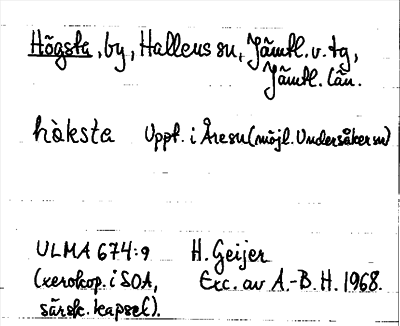 Högsta, by, Hallens sn, Jämtl. v. tg,
Jämtl. län.
hàksta Uppt. i Åresn (möjl. Undersåkersn)
ULMA 674:9 H. Geijer
(xerokop. i SOA, Exc. av A.-B. H. 1968.
särsk. kapsel).